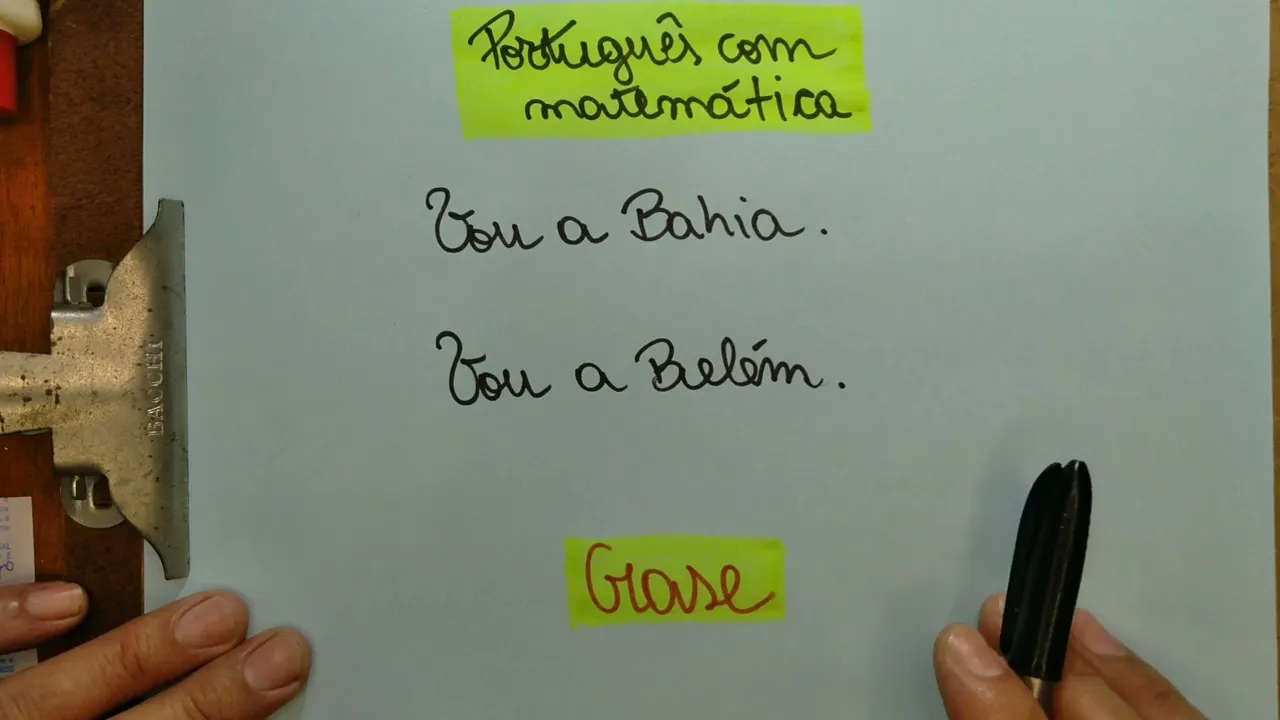 Português com
matemática
Vou a Bahia.
Vou a Belém.
Crase
BACCHI